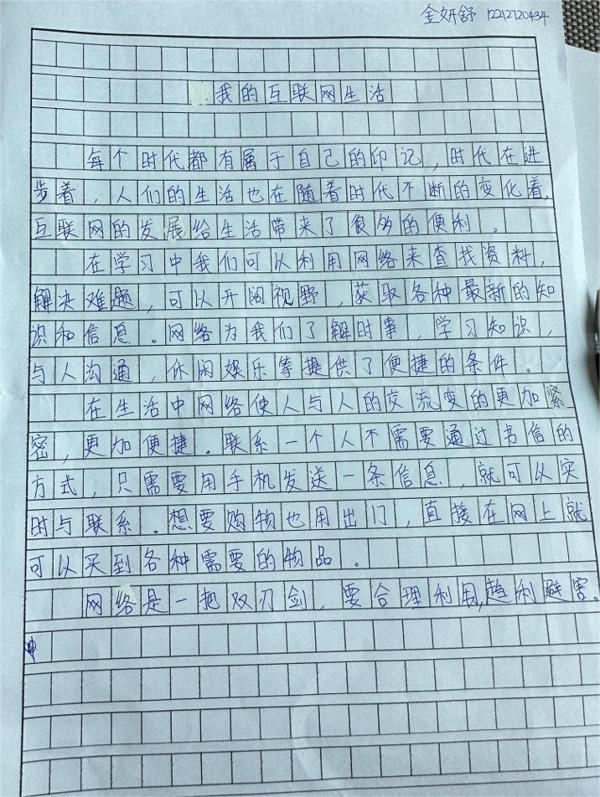 金妍舒 12212720434
我的互联网生活
每个时代都有属于自己的印记，时代在进
步着，人们的生活也在随着时代不断的变化着，
互联网的发展给生活带来了食多的便利。
在学习中我们可以利用网络来查找资料，
解决难题，可以开阔视野，获取各种最新的知
识和信息．网络为我们了解时事，学习知识，
与人沟通，休闲娱乐等提供了便捷的条件。
在生活中网络使人与人的交流变的更加紧
密，更加便捷．联系一个人不需要通过书信的
方式，只需要用手机发送一条信息，就可以实
时与联系．想要购物也用出门，直接在网上就
可以买到各种需要的物品。
网络是一把双刃剑，要合理利用，趋利避害．